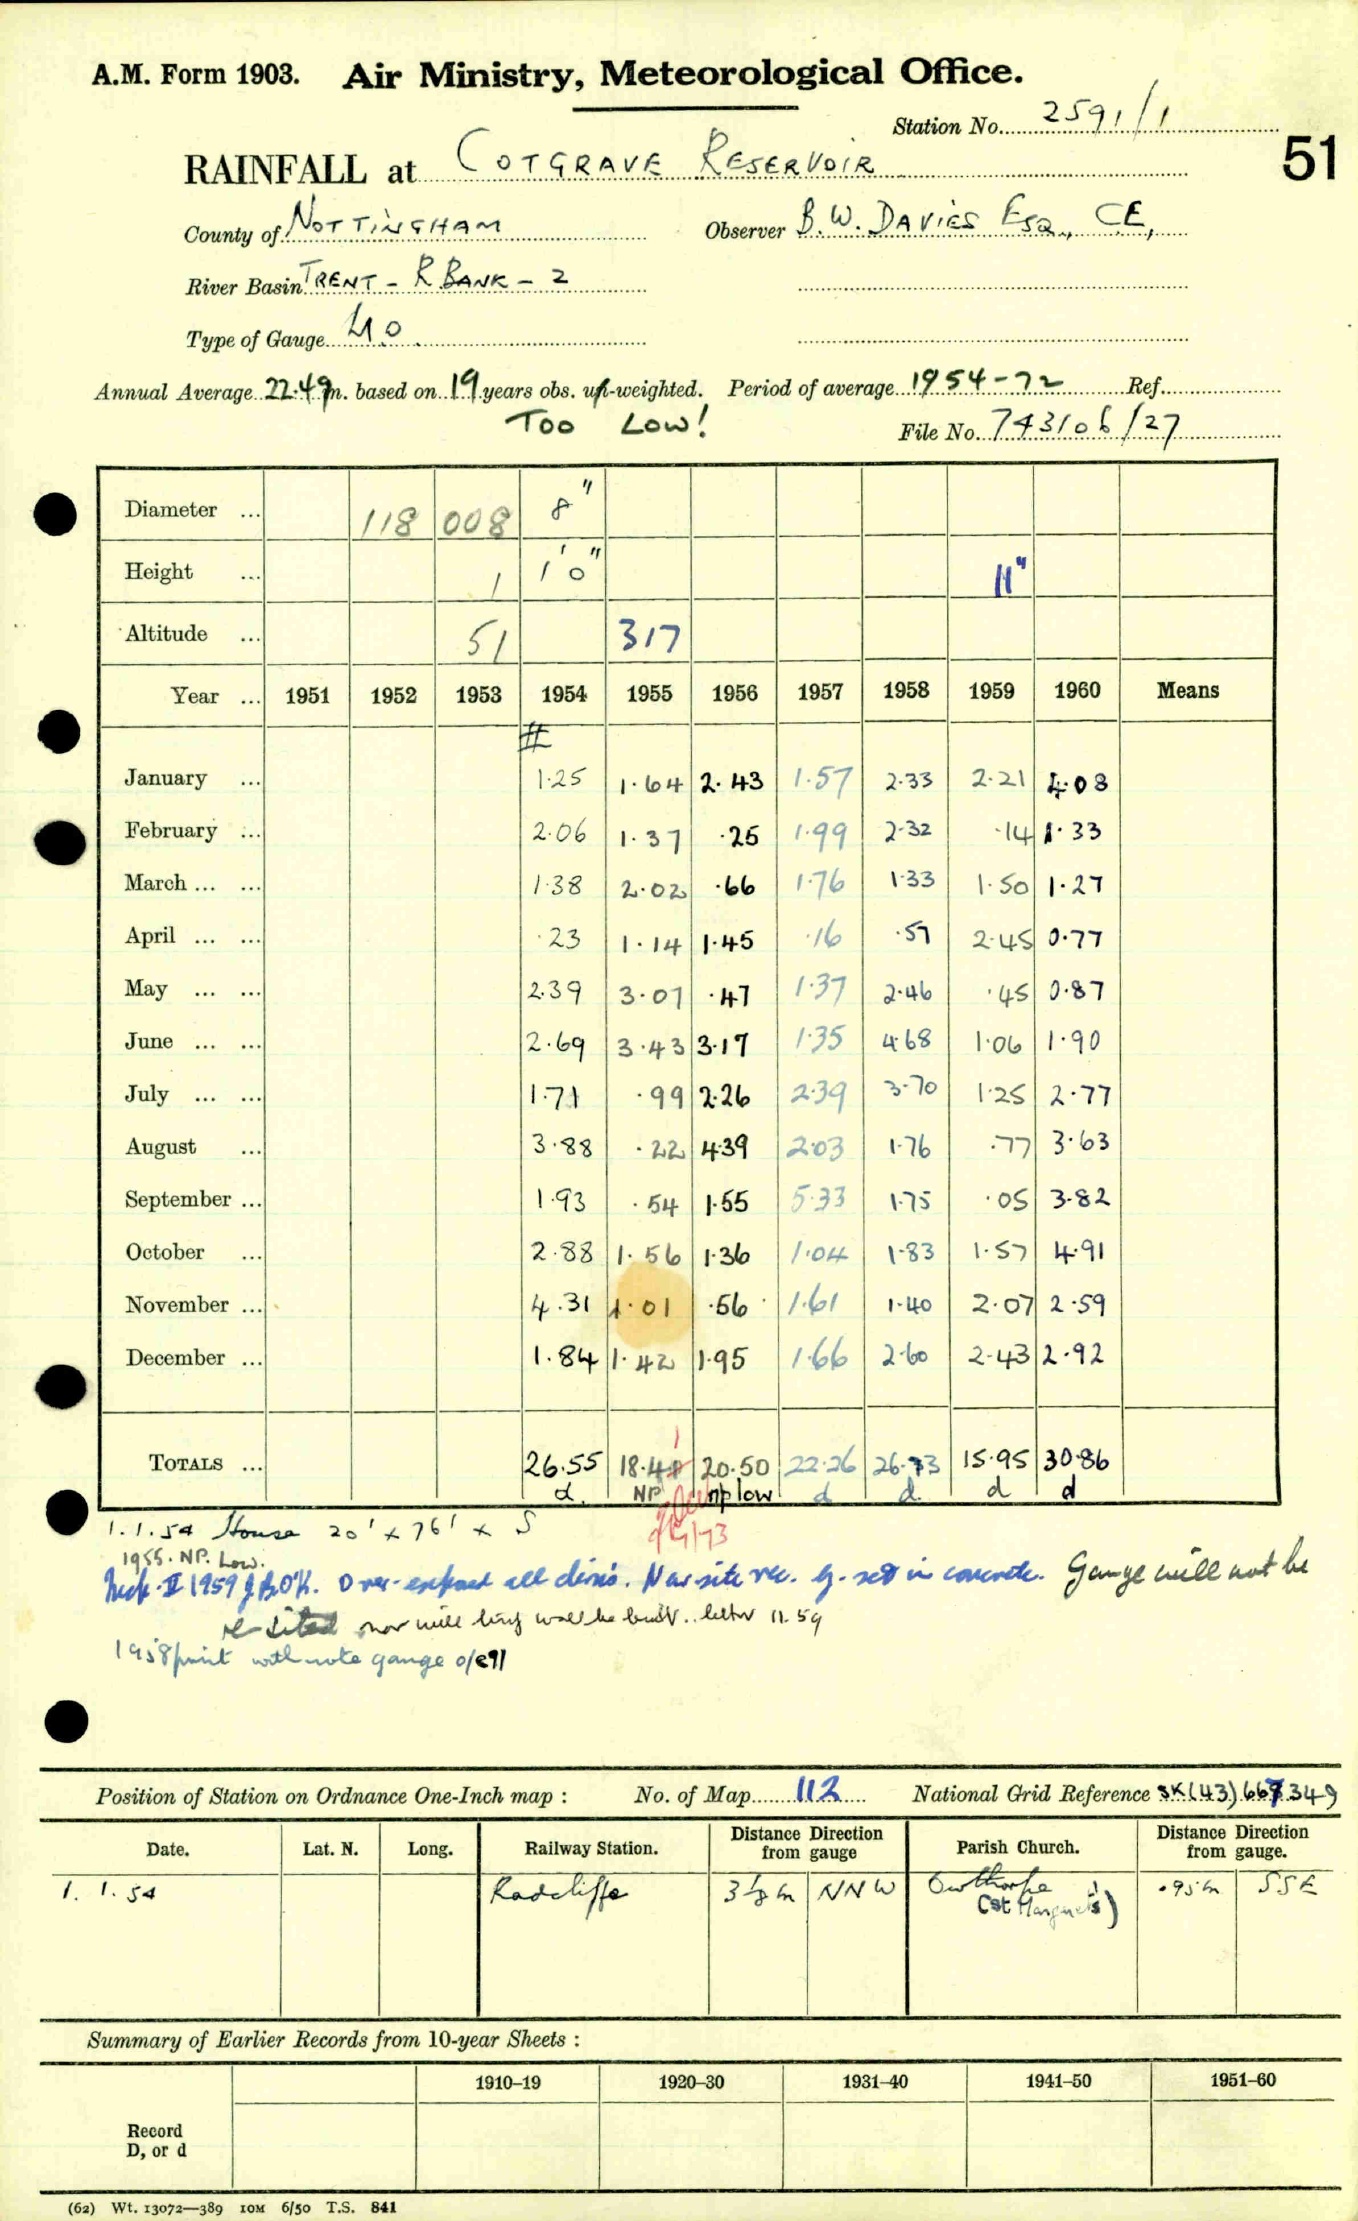 A.M. Form 1903. Air Ministry, Meteorological Office.
Station No. 2591/1
51
RAINFALL at COTGRAVE RESERVOIR
County of NOTTINGHAM Observer B.W. DAVIES ESQ., CE,
River Basin TRENT - R BANK - 2
Type of Gauge M.O.
Annual Average 22.49 in. based on 19 years obs. un-weighted. Period of average 1954-72 Ref.
TOO LOW! File No. 743106/27
Diameter ... 118 008 8"
Height ... 1 1'0" 11"
Altitude ... 51 317
Year ... 1951 1952 1953 1954 1955 1956 1957 1958 1959 1960 Means
#
January ... 1.25 1.64 2.43 1.57 2.33 2.21 4.08
February ... 2.06 1.37 .25 1.99 2.32 .14 1.33
March ... ... 1.38 2.02 .66 1.76 1.33 1.50 1.27
April ... ... .23 1.14 1.45 .16 .57 2.45 0.77
May ... ... 2.39 3.07 .47 1.37 2.46 .45 0.87
June ... ... 2.69 3.43 3.17 1.35 4.68 1.06 1.90
July ... ... 1.71 .99 2.26 2.39 3.70 1.25 2.77
August ... 3.88 .22 4.39 2.03 1.76 .77 3.63
September ... 1.93 .54 1.55 5.33 1.75 .05 3.82
October ... 2.88 1.56 1.36 1.04 1.83 1.57 4.91
November ... 4.31 1.01 .56 1.61 1.40 2.07 2.59
December ... 1.84 1.42 1.95 1.66 2.60 2.43 2.92
1
TOTALS ... 26.55 18.4 20.50 22.26 26.73 15.95 30.86
d. NP np low d d. d d
1.1.54 House 20' x 76' x S
1955. NP. Low.
II 1959 J.B.O'K. Over-exposed all dirns. New site rec. g. set in concrete. Gauge will not be
re-sited nor will turf wall be built. letter 11.59
1958 print with note gauge o/e
Position of Station on Ordnance One-Inch map : No. of Map 112 National Grid Reference SK(43) 667349
Date. Lat. N. Long. Railway Station. Distance from gauge Direction Parish Church. Distance from gauge. Direction
1. 1. 54 Radcliffe 3⅛ m NNW Owthorpe (St Margaret's) .95m SSE
Summary of Earlier Records from 10-year Sheets :
1910–19 1920–30 1931–40 1941–50 1951–60
Record
D, or d
(62) Wt. 13072—389 10M 6/50 T.S. 841